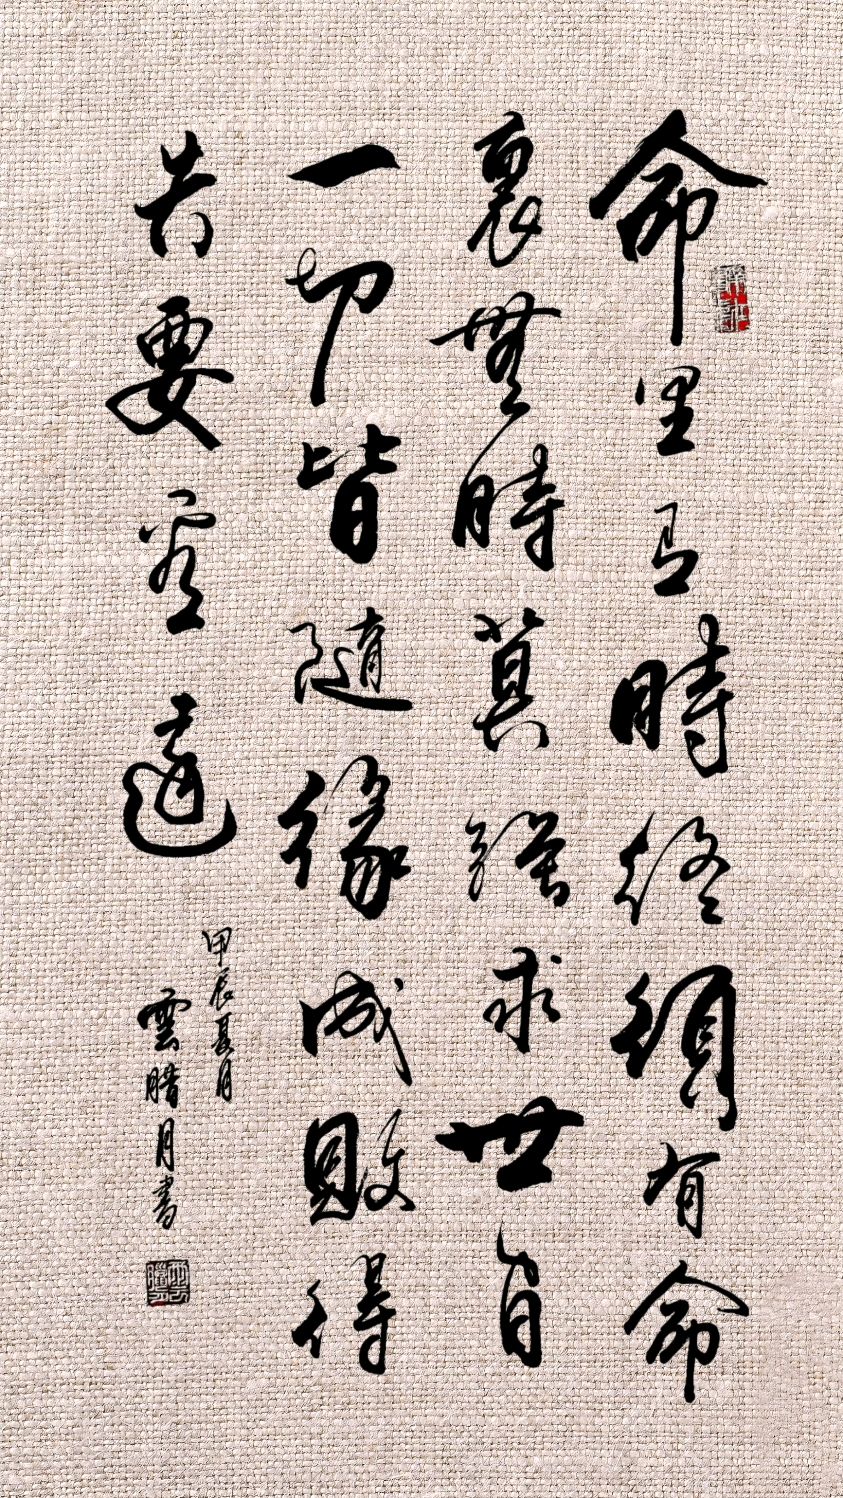 命里有時終須有命
裏無時莫強求世間
一切皆隨緣成敗得
要
甲辰夏月
雲腊月書